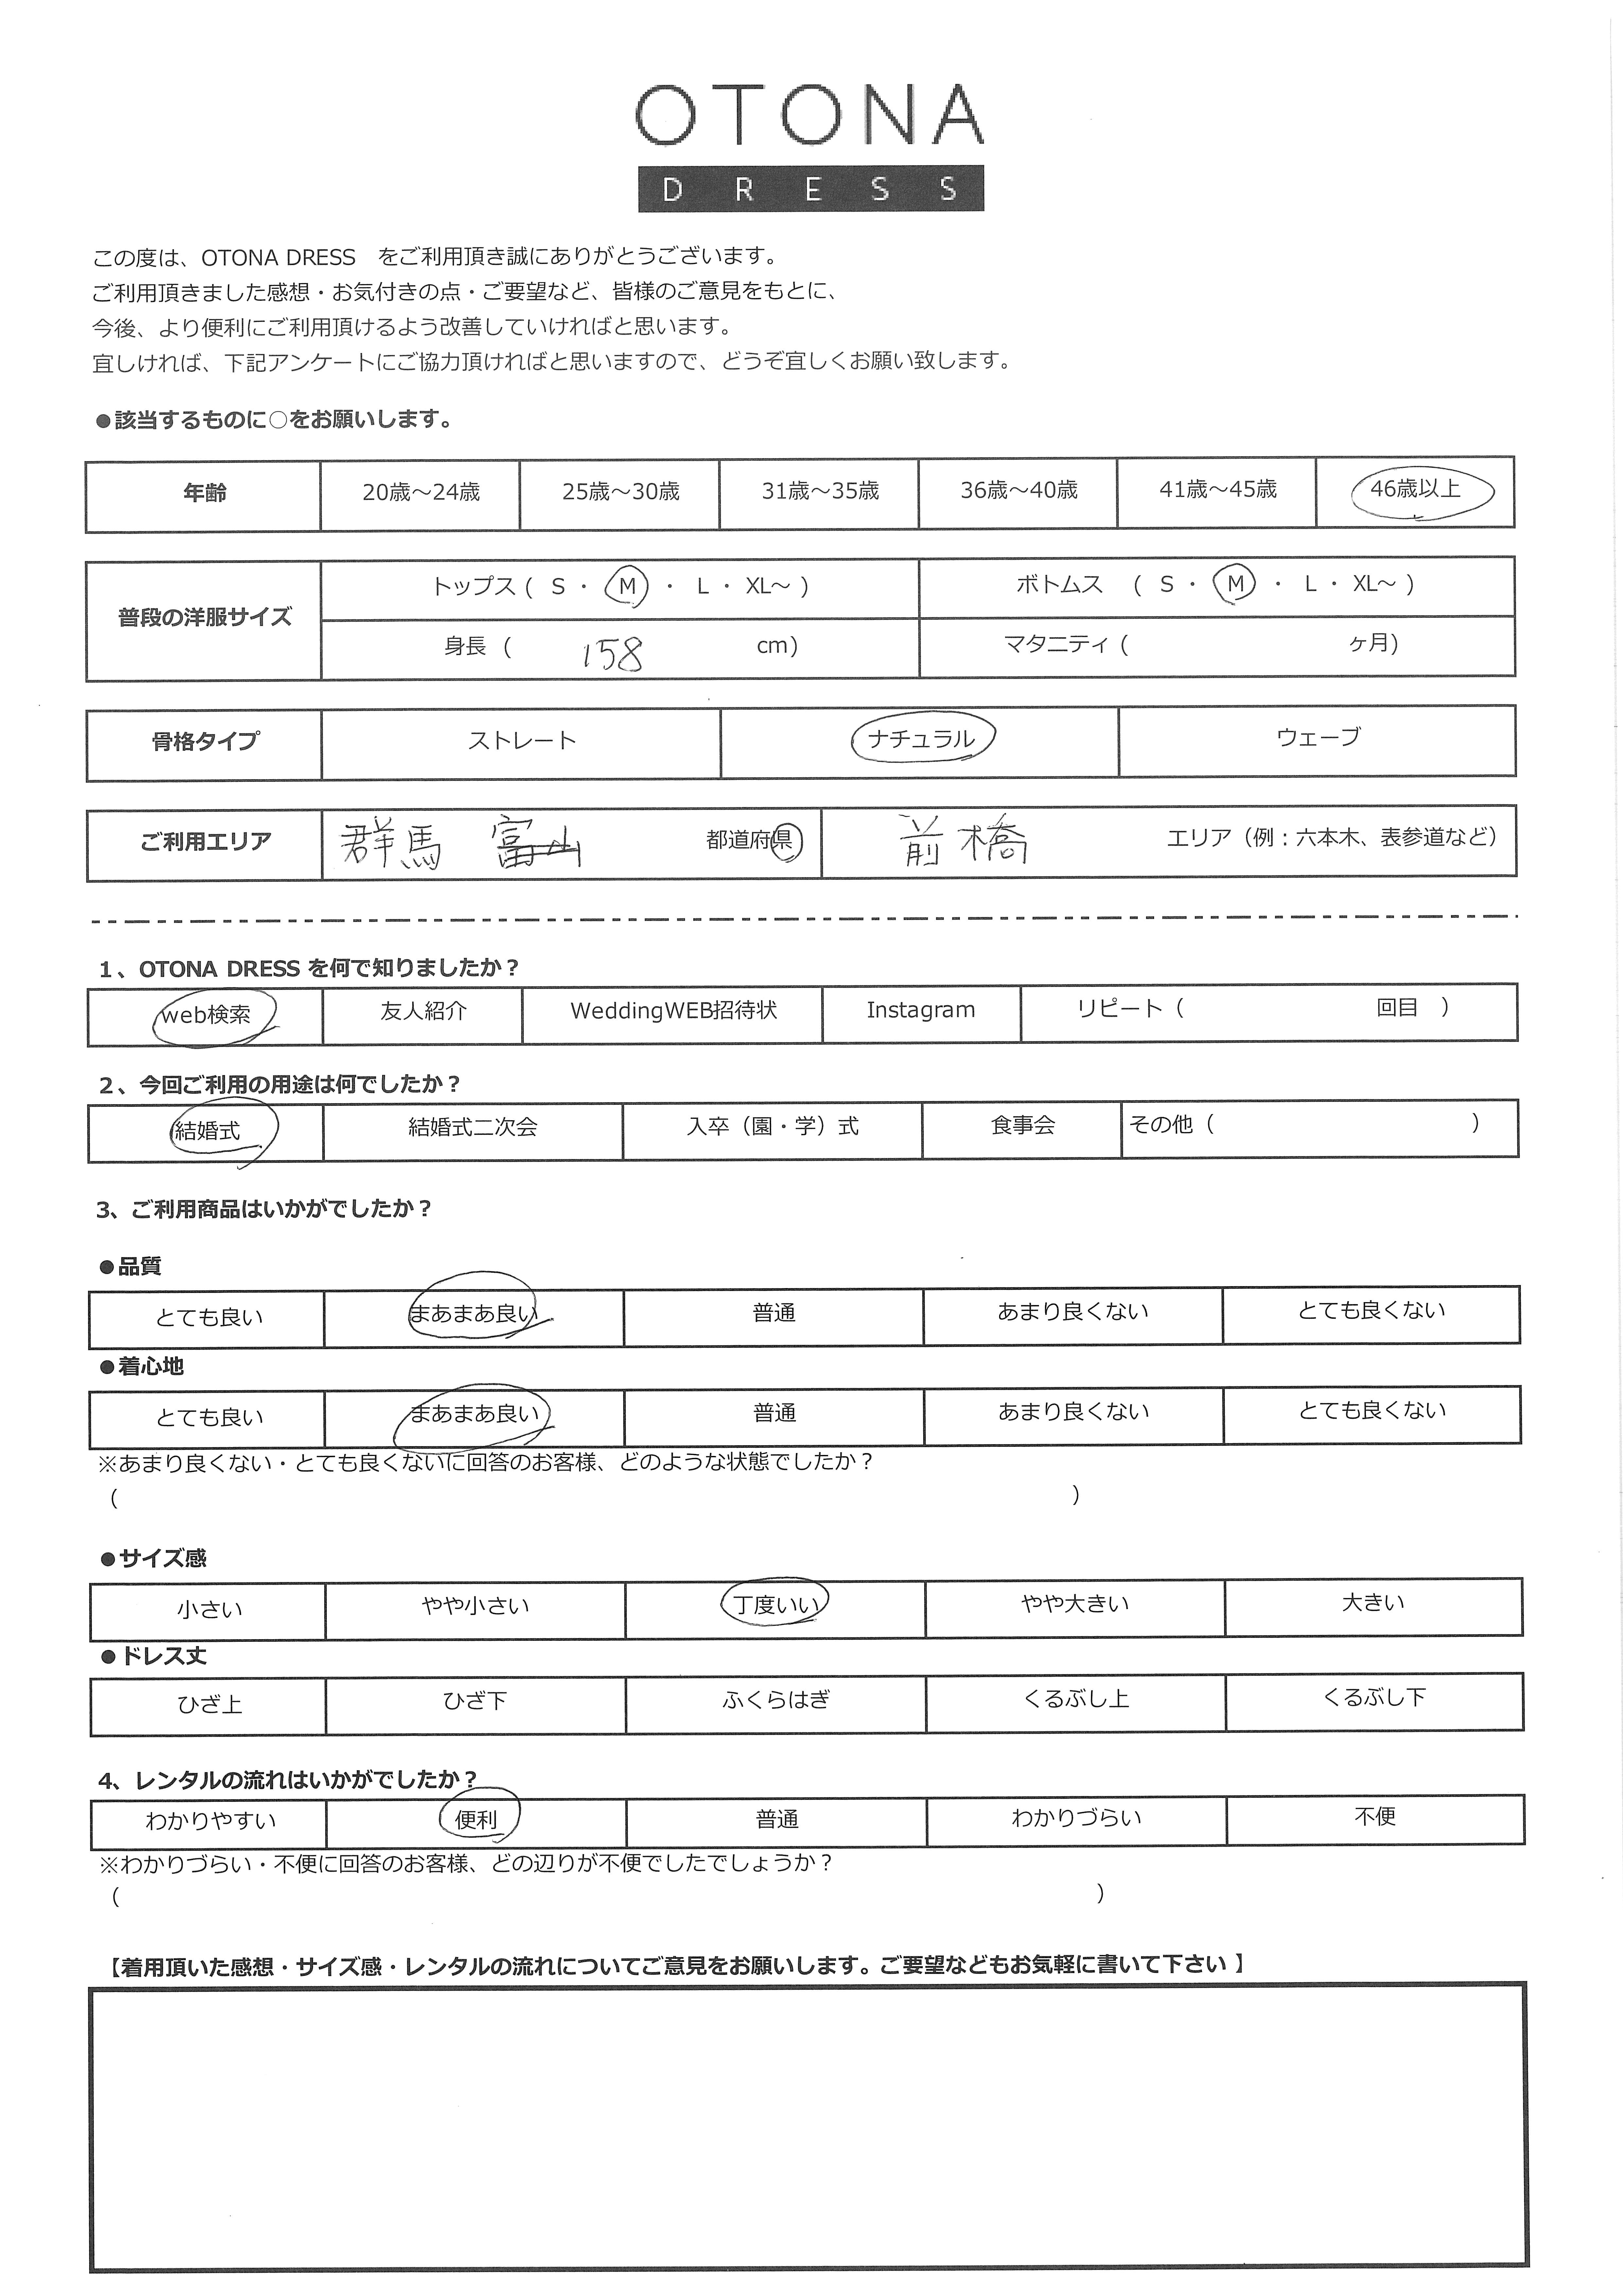 OTONA
DRESS
この度は、OTONA DRESS　をご利用頂き誠にありがとうございます。
ご利用頂きました感想・お気付きの点・ご要望など、皆様のご意見をもとに、
今後、より便利にご利用頂けるよう改善していければと思います。
宜しければ、下記アンケートにご協力頂ければと思いますので、どうぞ宜しくお願い致します。
●該当するものに○をお願いします。
年齢 20歳～24歳 25歳～30歳 31歳～35歳 36歳～40歳 41歳～45歳 46歳以上
普段の洋服サイズ トップス ( S ・ M ・ L ・ XL～ ) ボトムス ( S ・ M ・ L ・ XL～ )
身長 ( 158 cm) マタニティ ( ヶ月)
骨格タイプ ストレート ナチュラル ウェーブ
ご利用エリア 群馬 富山 都道府県 前橋 エリア（例：六本木、表参道など）
1、OTONA DRESS を何で知りましたか？
web検索 友人紹介 WeddingWEB招待状 Instagram リピート（ 回目 ）
2、今回ご利用の用途は何でしたか？
結婚式 結婚式二次会 入卒（園・学）式 食事会 その他（ ）
3、ご利用商品はいかがでしたか？
●品質
とても良い まあまあ良い 普通 あまり良くない とても良くない
●着心地
とても良い まあまあ良い 普通 あまり良くない とても良くない
※あまり良くない・とても良くないに回答のお客様、どのような状態でしたか？
（ ）
●サイズ感
小さい やや小さい 丁度いい やや大きい 大きい
●ドレス丈
ひざ上 ひざ下 ふくらはぎ くるぶし上 くるぶし下
4、レンタルの流れはいかがでしたか？
わかりやすい 便利 普通 わかりづらい 不便
※わかりづらい・不便に回答のお客様、どの辺りが不便でしたでしょうか？
（ ）
【着用頂いた感想・サイズ感・レンタルの流れについてご意見をお願いします。ご要望などもお気軽に書いて下さい 】